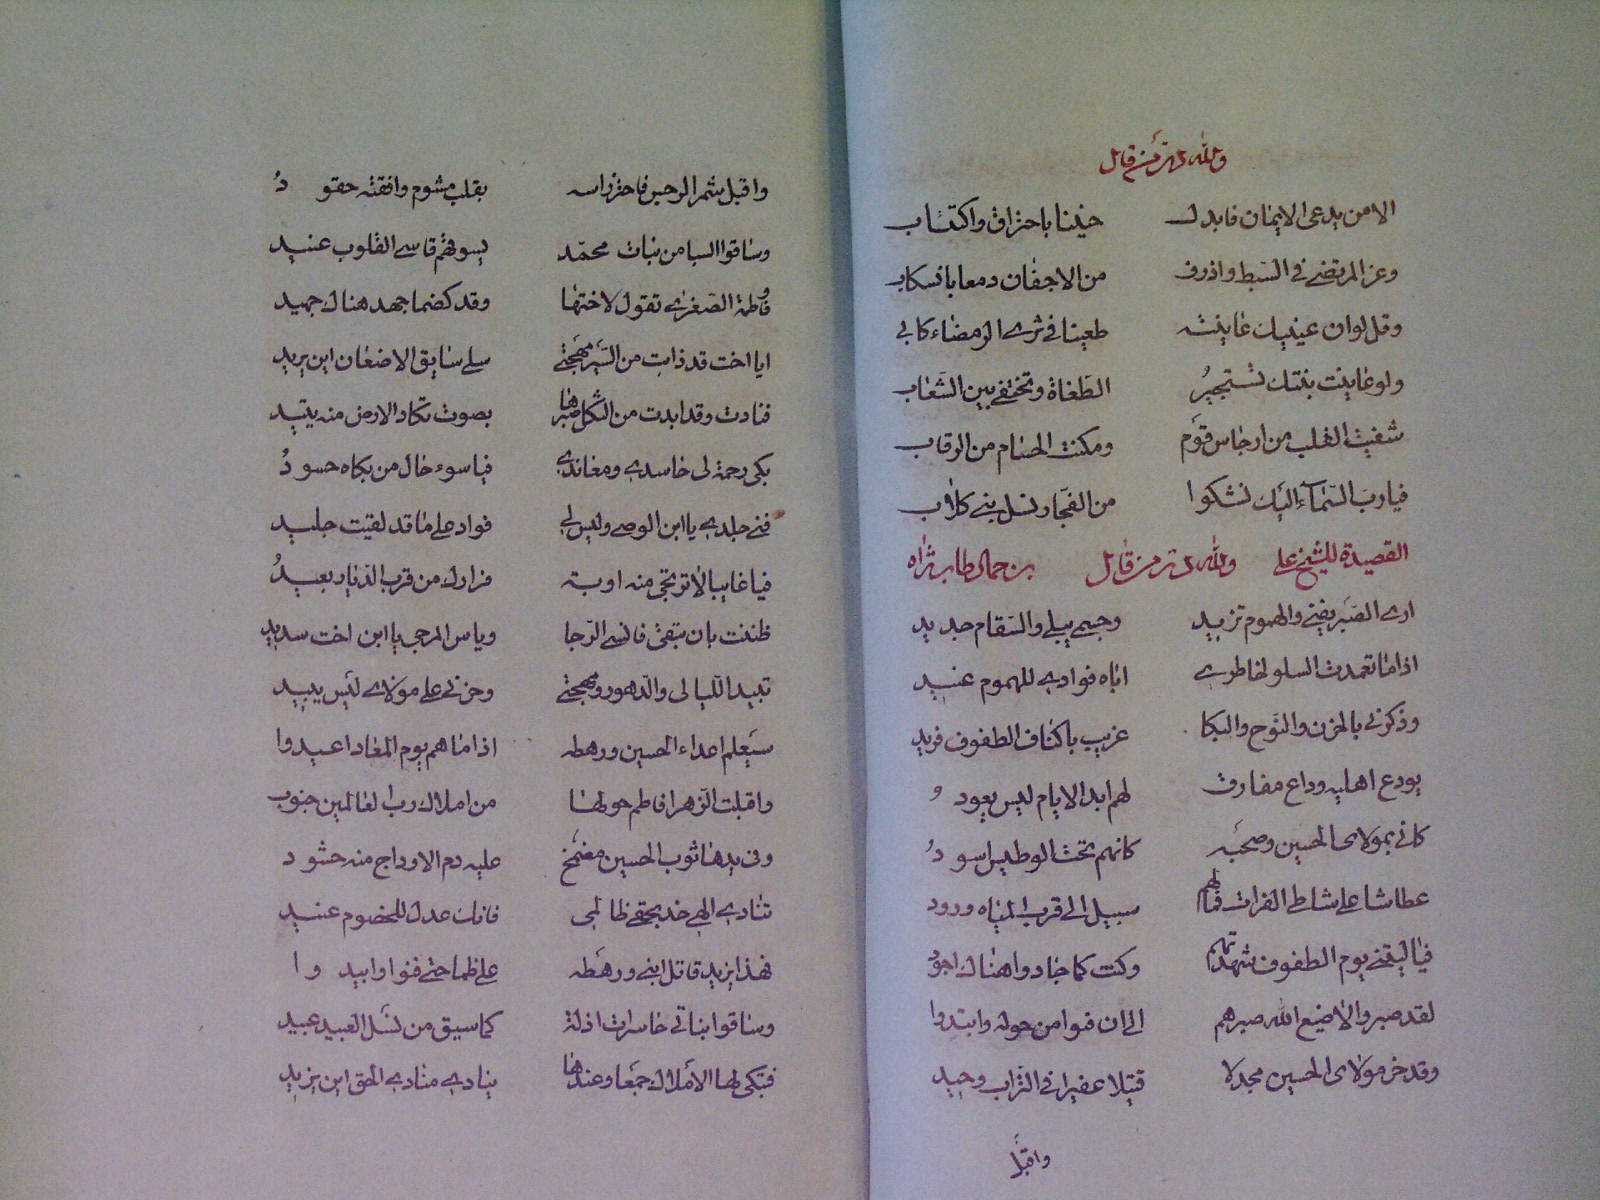 ولله در من قايل
الا من يدعى الايمان فابدل حنينا باحتراق واكتئاب
وعز المرتضى في السبط واذرف من الاجفان دمعا بانسكاب
وقل لو ان عينيك عاينته طعينا في ثرى الرمضاء كابي
ولو عاينت بنتك تستجير الطغاة وتختفي بين الشعاب
شفيت القلب من ارجاس قوم ومكنت الحسام من الرقاب
فيا رب السماء اليك نشكوا من الفجار نسل بني كلاب
القصيدة للشيخ علي ولله در من قايل بن حماد طاب ثراه
ارى الصبر يفنى والهموم تزيد وجسمي يبلى والسقام جديد
اذا ما تعمدت السلو لخاطري اباه فوادي للهموم عنيد
وذكرني بالحزن والنوح والبكا غريب باكناف الطفوف فريد
يودع اهليه وداع مفارق لهم ابد الايام ليس يعود
كاني بمولاى الحسين وصحبه كانهم تحت الوطيس اسود
عطاشا على شاطى الفرات فمالهم سبيل الى قرب المياه ورود
فيا ليتني يوم الطفوف شهدتهم وكنت كما جادوا هناك اجود
لقد صبروا لا ضيع الله صبرهم الى ان فنوا من حوله وابيدوا
وقد خر مولاى الحسين مجدلا قتيلا عفيرا في التراب وحيد
واقبل
واقبل شمر الرجس فاحتز راسه بقلب مشوم وافقته حقود
وساقوا السبا من بنات محمد يسوقهم قاسي القلوب عنيد
وفاطمة الصغرى تقول لاختها وقد كضها جهد هناك جهيد
ايا اخت قد ذابت من السير مهجتي سلي سايق الاضعان اين يريد
فنادت وقد ابدت من الثكل ضرها بصوت تكاد الارض منه تبيد
بكى رحمة لي حاسدي ومعاندي فيا سوء حال من بكاه حسود
فني جلدي يا ابن الوصي وليس لي فواد على ما قد لقيت جليد
فيا غايبا لا ترتجى منه اوبة مزارك من قرب الديار بعيد
ظننت بان تبقى فانسى الرجا وياس المرجى يا ابن اخت سديد
تبيد الليالى والدهور ومهجتي وحزني على مولاى ليس يبيد
سيعلم اعداء الحسين ورهطه اذا ما هم يوم المعاد اعيدوا
واقبلت الزهرا فاطم حولها من املاك رب العالمين جنود
وفي يدها ثوب الحسين مضمخ عليه دم الاوداج منه حشود
تنادي الهي خذ بحقي ظالمي فانت عدل للخصوم عنيد
فهذا يزيد قاتل ابني ورهطه على ظما حتى فنوا وابيدوا
وساقوا بناتي حاسرات اذلة كما سيق من نسل العبيد عبيد
فتبكى لها الاملاك جمعا وعندها ينادي منادي الحق اين يزيد